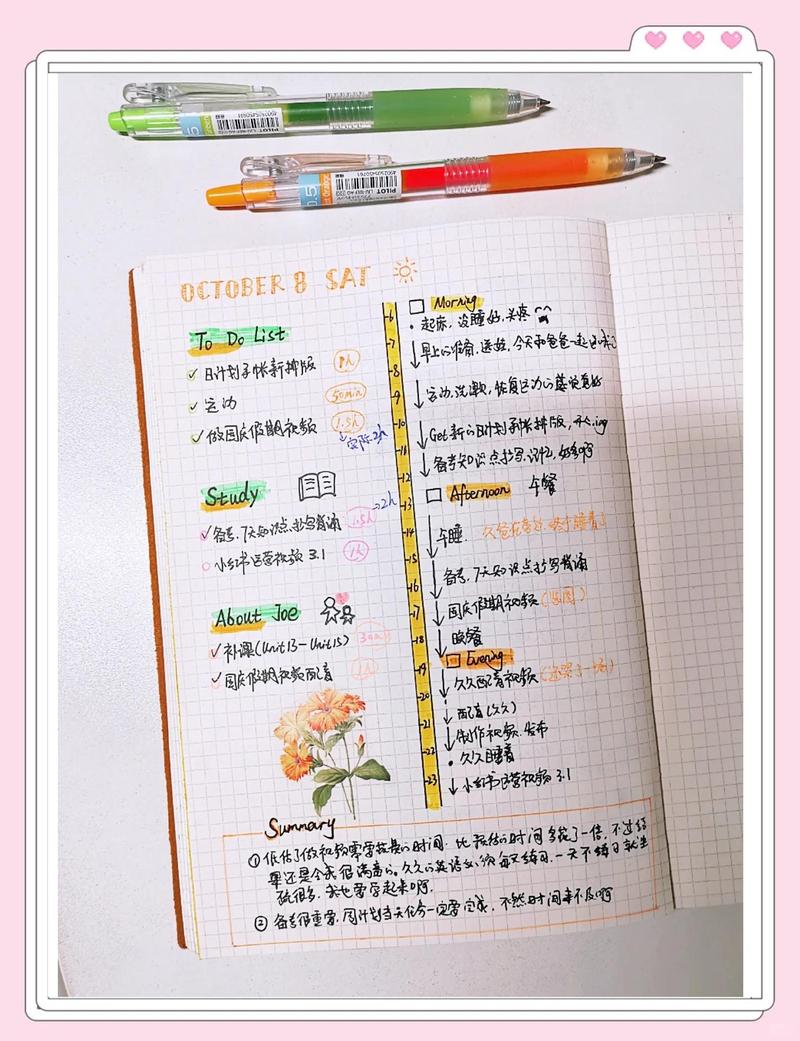 PILOT
0.5
PILOT
0.5
OCTOBER 8 SAT
To Do List
日计划手帐新排版 1h
运动 50min
做国庆假期视频 1.5h
实际2h
Study
备考.7天知识点抄写背诵 1.5h →2h
小红书运营视频 3.1 1h
About Joe
补课(Unit13-Unit15) 30m
国庆假期视频配音 1h
6
7
8
9
10
11
12
13
14
15
16
17
18
19
20
21
22
23
Morning
起床,没睡好,头疼
早上准备,送娃,今天和爸爸一起
运动,洗漱,恢复运动的感觉真好
Get新的日计划手帐排版,开心ing
备考知识点抄写、记忆,好多啊
Afternoon 午餐
午睡.
备考.7天知识点抄写背诵
国庆假期视频
晚餐
Evening
久久配音视频(还哭了一场)
配音(久久)
制作视频.发布
久久睡着
小红书运营视频 3.1
Summary
① 低估了做视频需要花费的时间.比预估的时间多花了一倍,不过结
果还是令我很满意的。久久的英语必须每天练习,一天不练习就生
疏很多,我也要学起来啊.
② 备考很重要,周计划当天任务一定要完成,不然时间来不及啊